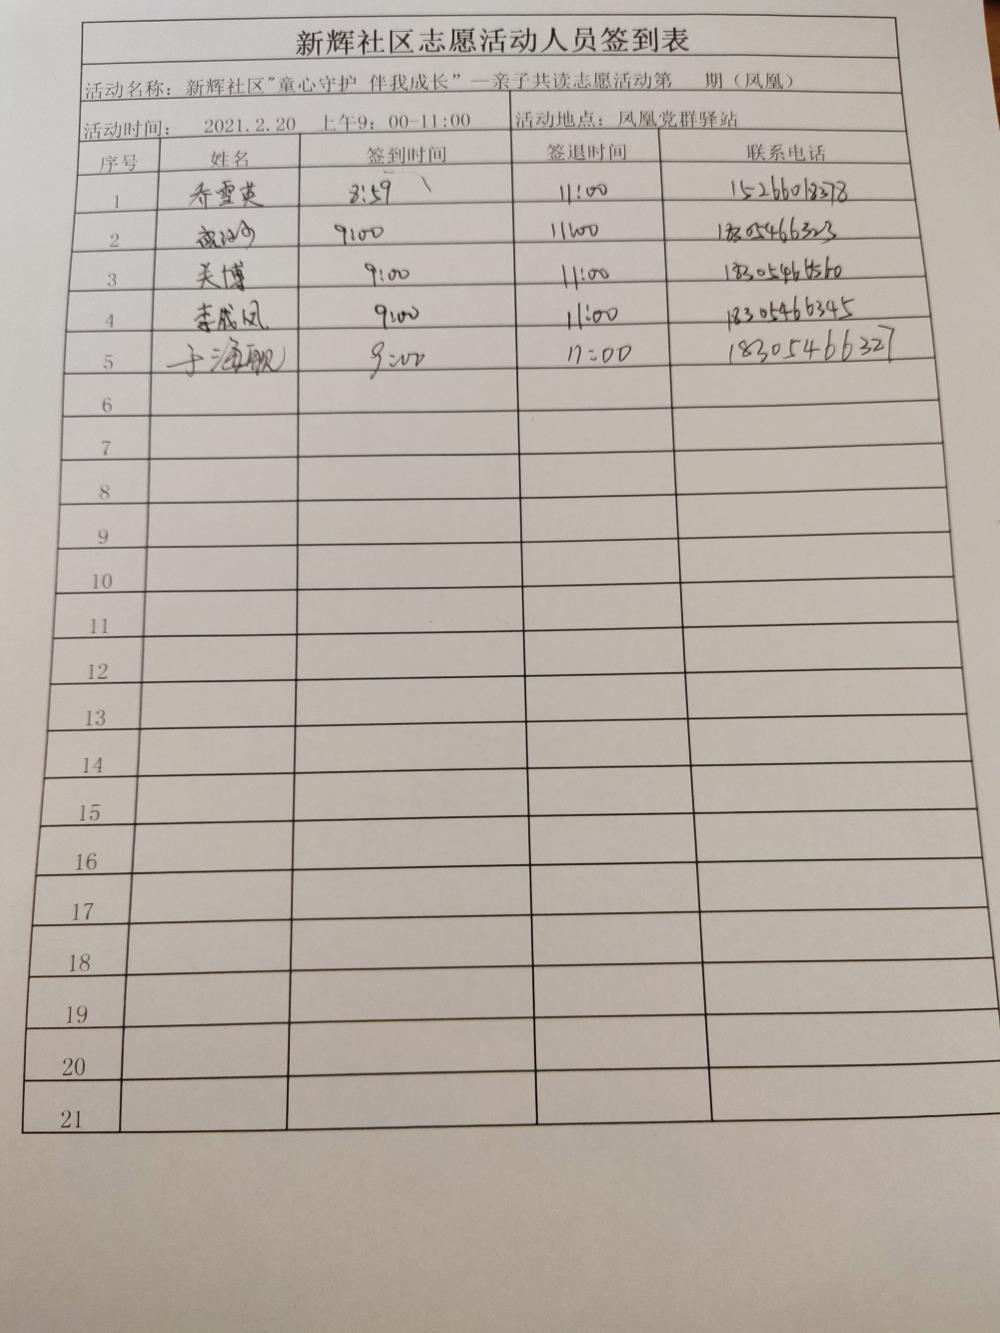 新辉社区志愿活动人员签到表
活动名称：新辉社区"童心守护 伴我成长”—亲子共读志愿活动第 期（凤凰）
活动时间： 2021.2.20 上午9：00-11:00 活动地点：凤凰党群驿站
序号 姓名 签到时间 签退时间 联系电话
1 乔雪英 8:59 11:00 15266018378
2 9:00 11:00 18305466323
3 关博 9:00 11:00
4 李成凤 9:00 11:00 18305466345
5 于海 9:00 11:00 18305466327
6
7
8
9
10
11
12
13
14
15
16
17
18
19
20
21